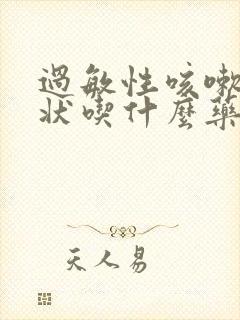 過敏性咳嗽
狀喫什麼藥
天人易